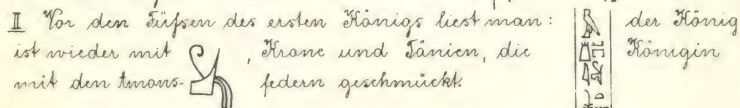 II Vor den Füfsen des ersten Königs liest man: der König
ist wieder mit , Krone und Tänien, die Königin
mit den Amons- federn geschmückt.